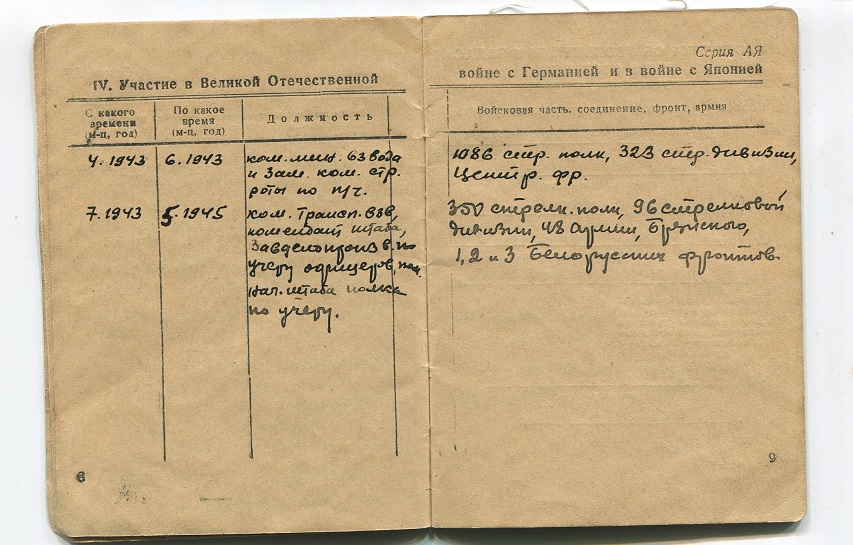 IV. Участие в Великой Отечественной
С какого времени (м-ц, год)
По какое время (м-ц, год)
Должность
4.1943 6.1943 ком. мин. взвода
и зам. ком. стр.
роты по п/ч.
7.1943 5.1945 ком. трансп. взв,
комендант штаба,
Завделопроизв. по
учету офицеров, пом.
нач. штаба полка
по учету.
Серия АЯ
войне с Германией и в войне с Японией
Войсковая часть, соединение, фронт, армия
1086 стр. полк, 323 стр. дивизии,
Центр. фр.
350 стрелк. полк, 96 стрелковой
дивизии, 48 Армии, Брянского,
1, 2 и 3 Белорусских фронтов
9